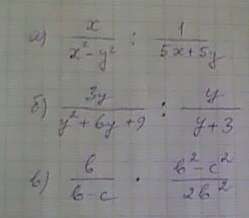 а) x / (x² - y²) : 1 / (5x + 5y)
б) 3y / (y² + 6y + 9) : y / (y + 3)
в) b / (b - c) · (b² - c²) / (2b²)